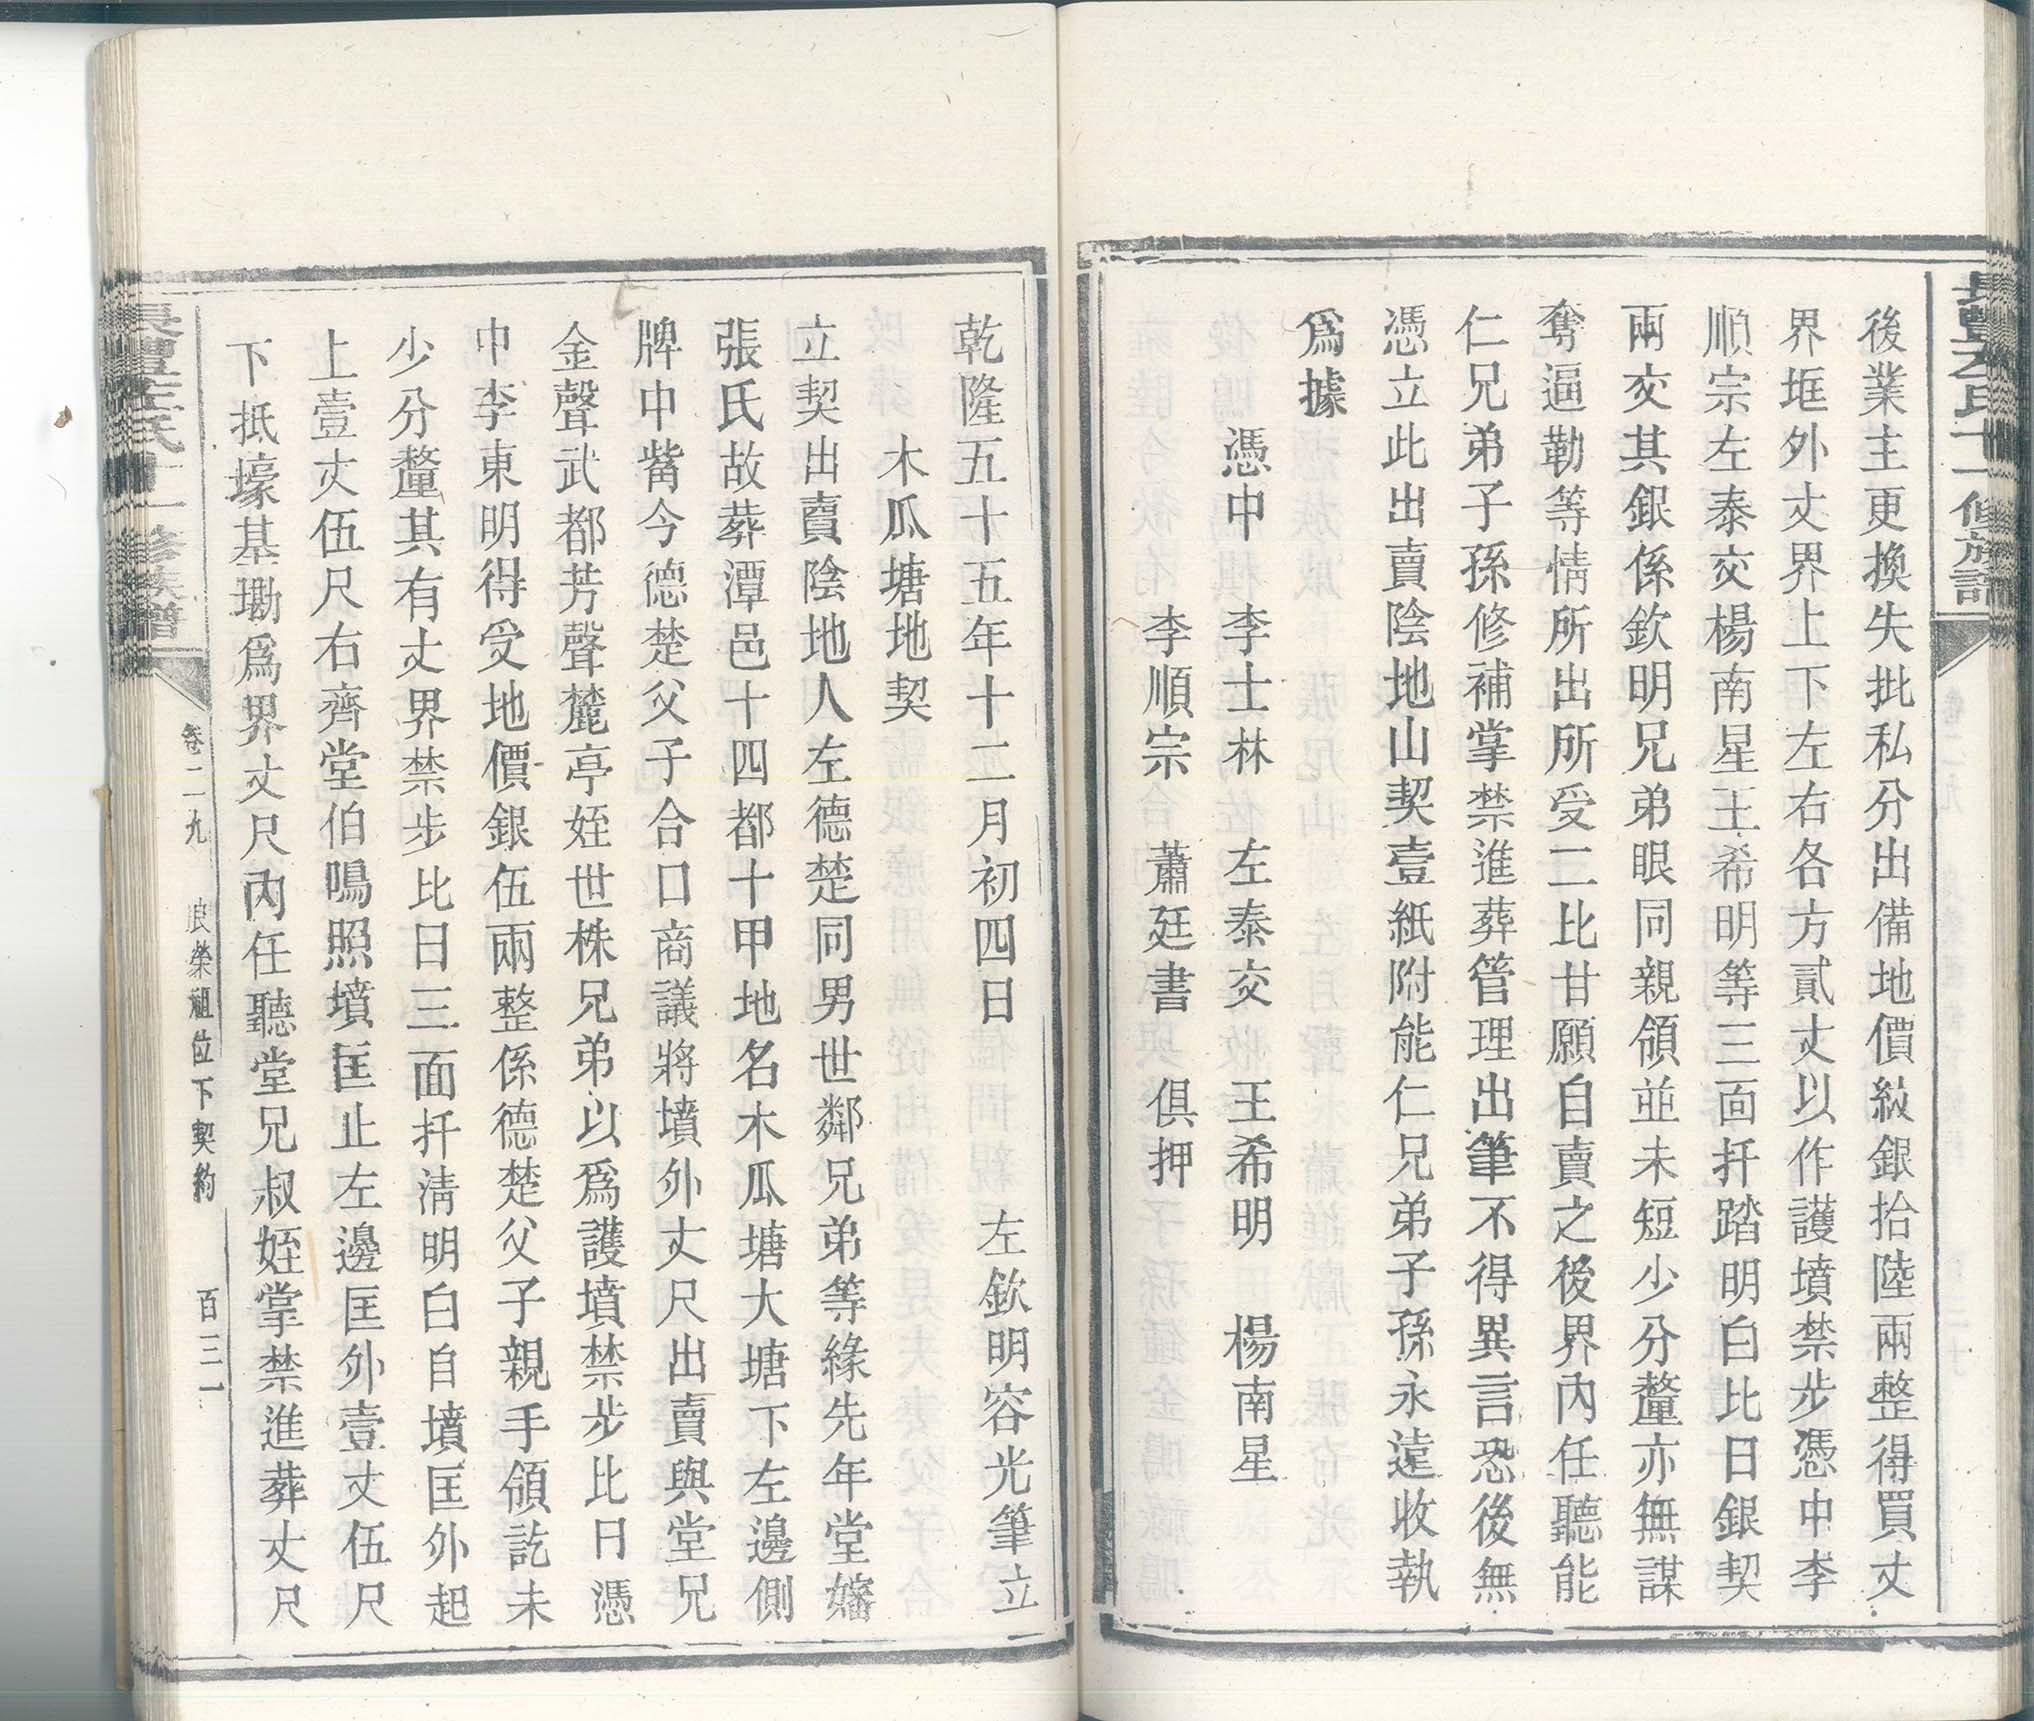 後業主更換失批私分出備地價紋銀拾陸兩整得買丈
界垇外丈界上下左右各方貳丈以作護墳禁步憑中李
順宗左泰交楊南星王希明等三面扦踏明白比日銀契
兩交其銀係欽明兄弟眼同親領並未短少分釐亦無謀
奪逼勒等情所出所受二比甘願自賣之後界內任聽能
仁兄弟子孫修補掌禁進葬管理出筆不得異言恐後無
憑立此出賣陰地山契壹紙附能仁兄弟子孫永遠收執
爲據
憑中 李士林 左泰交 王希明 楊南星
李順宗 蕭廷書 俱押
乾隆五十五年十二月初四日 左欽明容光筆立
木瓜塘地契
立契出賣陰地人左德楚同男世鄰兄弟等緣先年堂嬸
張氏故葬潭邑十四都十甲地名木瓜塘大塘下左邊側
牌中觜今德楚父子合口商議將墳外丈尺出賣與堂兄
金聲武都芳聲麓亭姪世株兄弟以爲護墳禁步比日憑
中李東明得受地價銀伍兩整係德楚父子親手領訖未
少分釐其有丈界禁步比日三面扦清明白自墳匡外起
上壹丈伍尺右齊堂伯鳴照墳匡止左邊匡外壹丈伍尺
下抵壕基墈爲界丈尺內任聽堂兄叔姪掌禁進葬丈尺
長豐左氏十一修族譜
卷二九 良榮祖位下契約 百三一